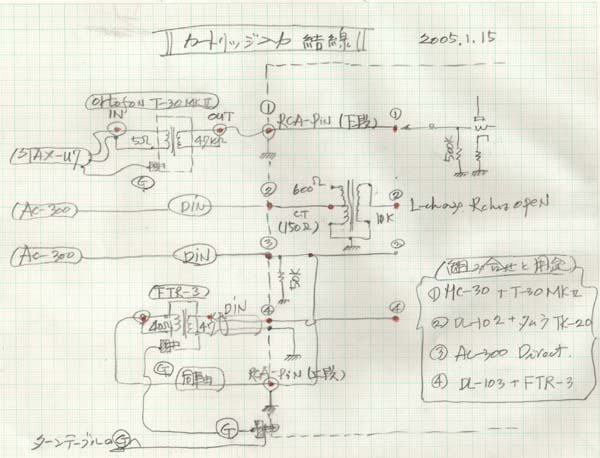 カートリッジ入力 結線
2005.1.15
ortofon T-30MKⅡ
IN
OUT
5Ω
47KΩ
①
RCA-PiN (下段)
①
STAX-U7
G
②
600Ω
CT
(150Ω)
10K
②
L-charge Rcharg OPEN
AC-300
DiN
AC-300
DiN
③
FTR-3
DiN
40Ω
④
④
G
RCA-PiN (上段)
G
ターンテーブルの G
(組み合せと測定)
① MC-30 + T-30MKⅡ
② DL-102 + タムラ TK-20
③ AC-300 Direct.
④ DL-103 + FTR-3